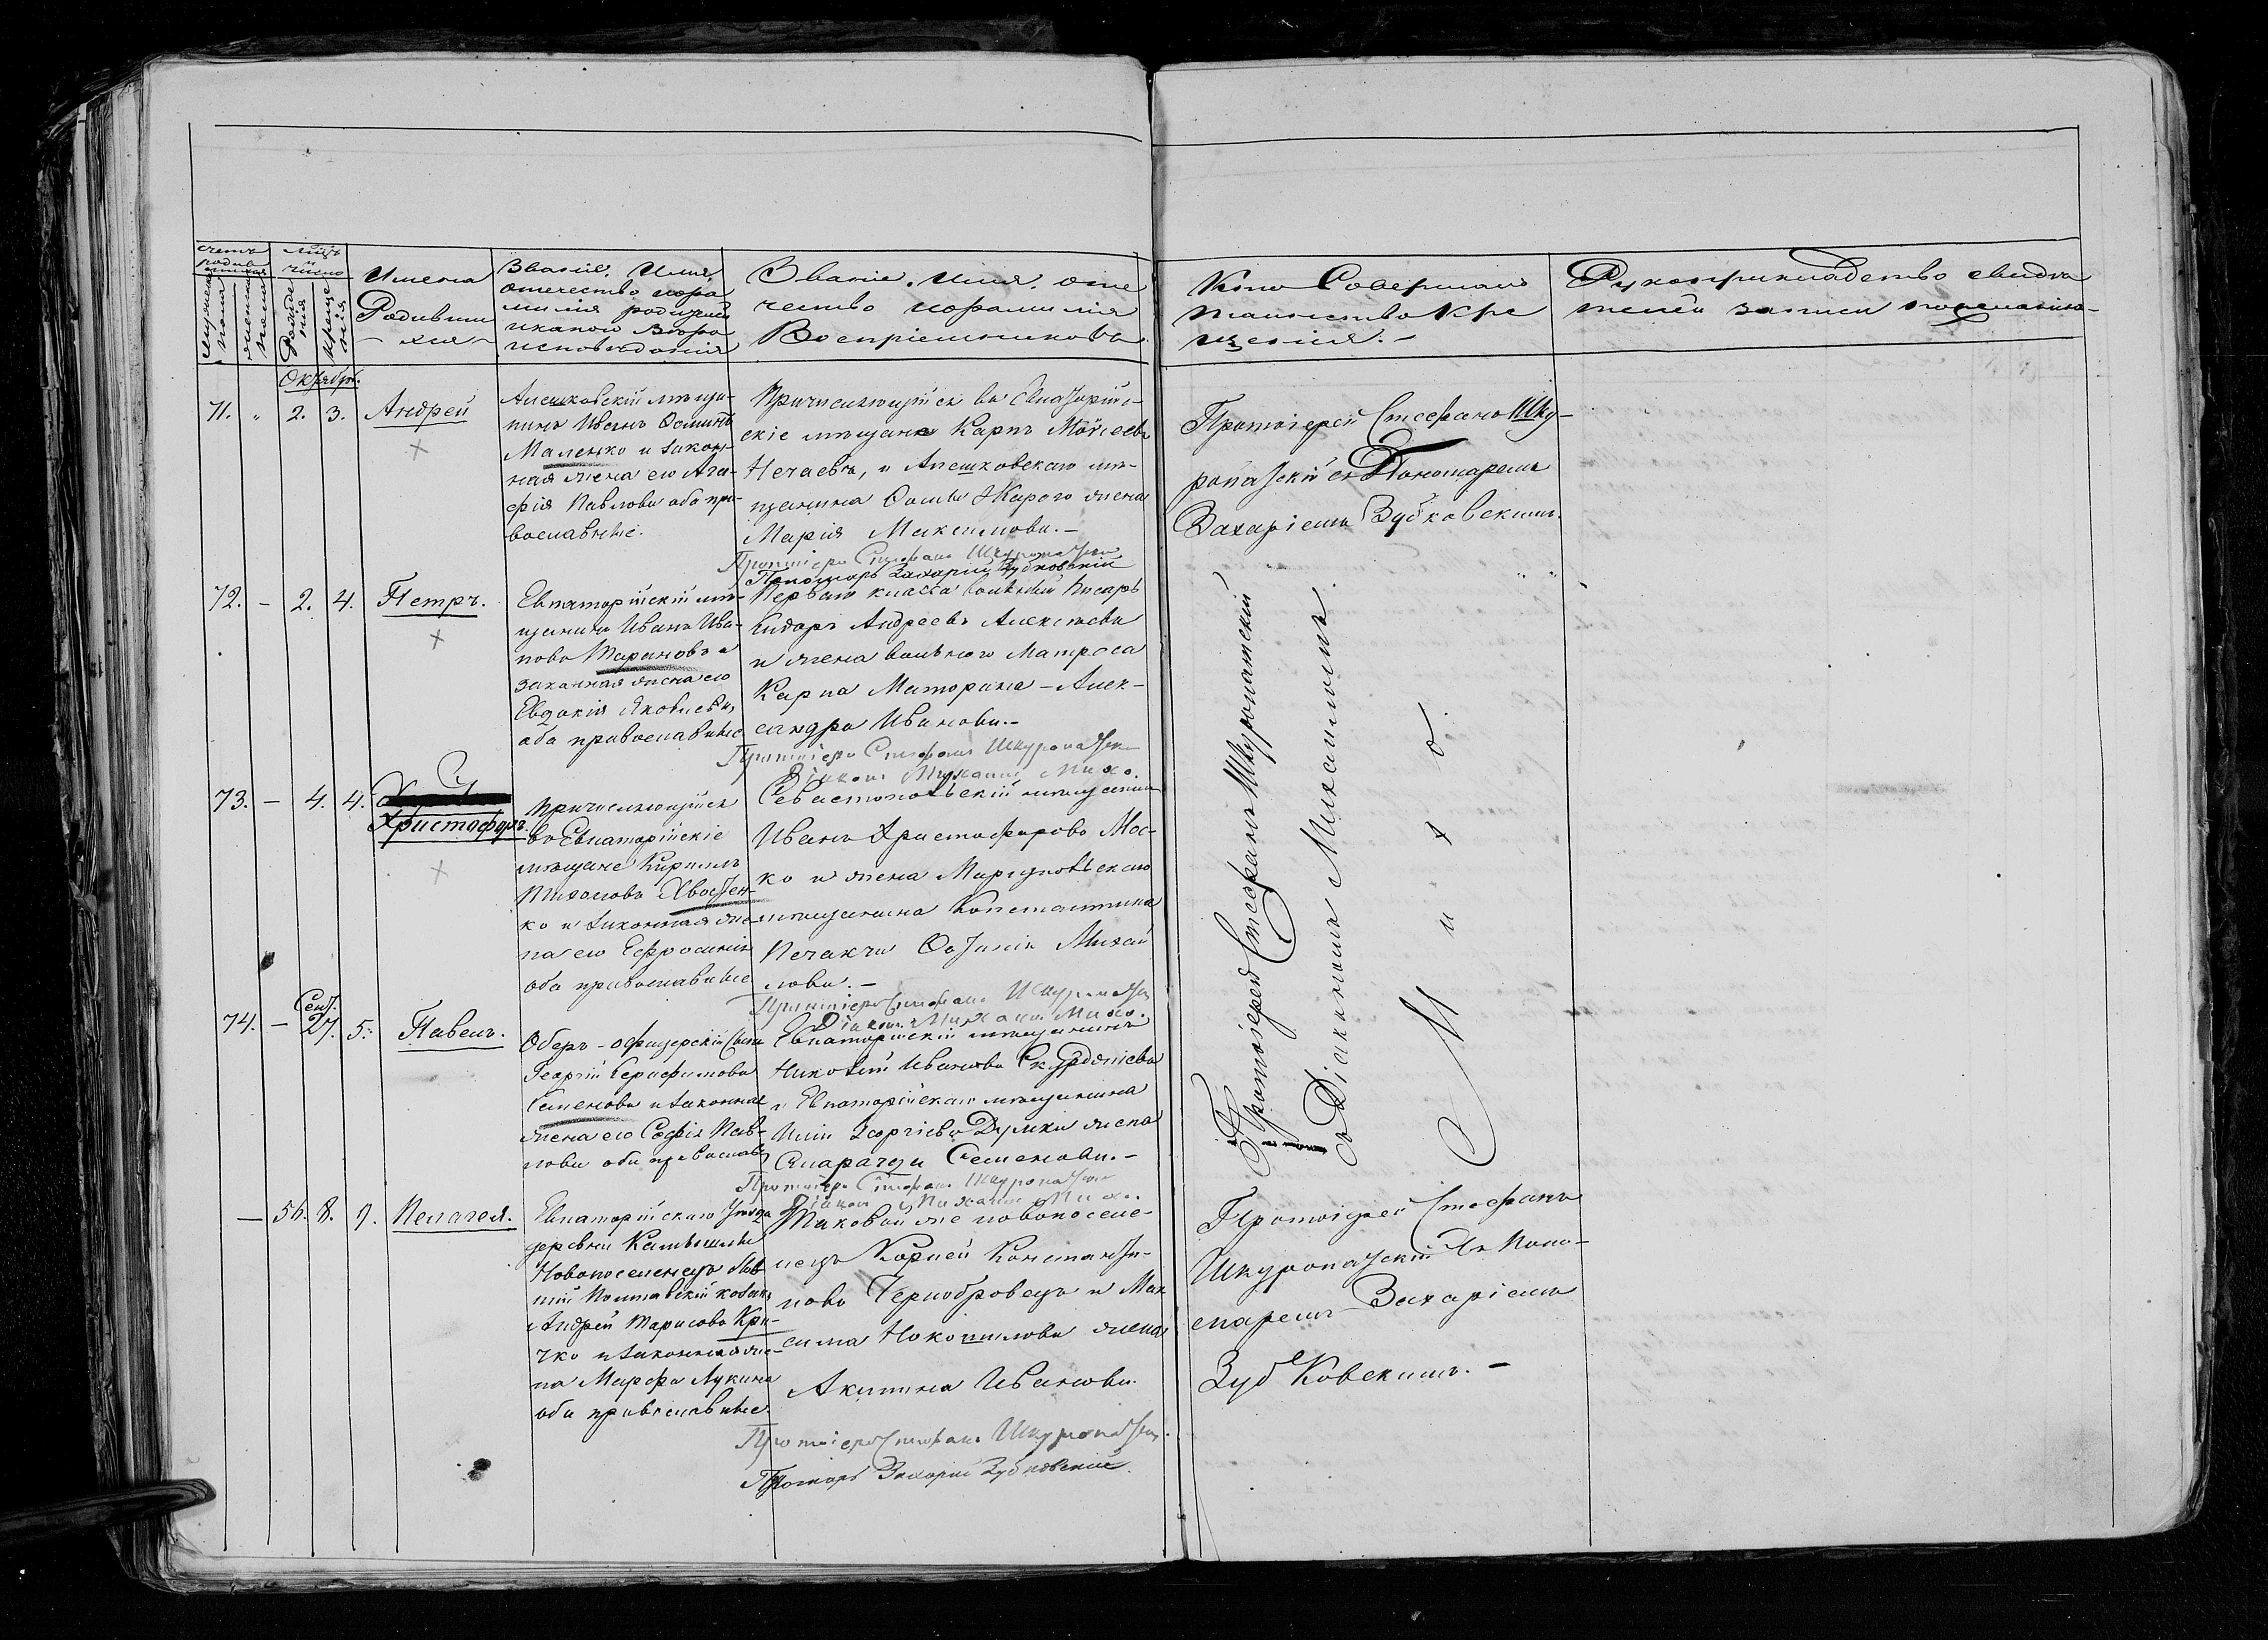 счетъ родив
шихся
мужеска
пола
женска
пола
мцъ
и
число
Рожде
нія
Креще
нія
Имена
Родивши
хся
Званіе, Имя,
отечество и фа
милія родителей
и какой вѣро
исповѣданія
Званіе, имя, оте
чество и фамилія
Воспріемниковъ
Кто Совершалъ
таинство Кре
щенія.-
Рукоприкладство свидѣ
телей записи
Октябрь.
71. „ 2. 3. Андрей
Алешковскій мѣща-
нинъ Иванъ
Маленко и закон-
ная жена его Ага-
фія Павлова оба пра-
вославные.
Причисляющійся въ Евпаторій-
скіе мѣщане Карпъ Моѵсеевъ
Нечаевъ, и Алешковскаго мѣ-
щанина жена
Марія Максимова.-
Протоіерей Стефанъ Шкуропатскій
Пономарь Захарій Зубковскій
Протоіерей Стефанъ Шку-
ропатскій съ Пономаремъ
Захаріемъ Зубковскимъ.
72. - 2. 4. Петръ.
Евпаторійскій мѣ-
щанинъ Иванъ Ива-
новъ Тарановъ и
законная жена его
Евдокія Яковлева,
оба православные
Перваго класса вольный писарь
Андреевъ Алексѣевъ
и жена вольнаго Матроса
Карпа Маторина - Алек-
сандра Иванова.-
Протоіерей Стефанъ Шкуропатскій
Діаконъ Михаилъ Михо.
73. - 4. 4. Христофоръ.
Причисляющійся
въ Евпаторійскіе
мѣщане Кирилъ
Хвостен-
ко и законная же-
на его Ефросинія
оба православные
Севастопольскій мѣщанинъ
Иванъ Христофоровъ Мос-
ко и жена Маріупольскаго
мѣщанина Константина
Михай
лова.-
Протоіерей Стефанъ Шкуропатскій
Діаконъ Михаилъ Михо.
Сент.
74. - 27. 5. Павелъ.
Оберъ-офицерскій сынъ
Георгій Серафимовъ
Семеновъ и законная
жена его Софія Пав-
лова оба православ
Евпаторійскій мѣщанинъ
Николай Ивановъ
и Евпаторійскаго мѣщанина
Иліи Георгіева Думки жена
Смарагда Семенова.-
Протоіерей Стефанъ Шкуропатскій
Діаконъ Михаилъ Михо.
Протоіерей Стефанъ Шкуропатскій
съ Діакономъ Михаиломъ
М и х о
- 56. 8. 9. Пелагея.
Евпаторійскаго уѣзда
деревни Камышлы
Новопоселенецъ
Полтавскій козакъ
Андрей Тарасовъ Кри-
чко и законная же-
на Марфа Лукина
оба православные.
Таковой же новопоселе-
нецъ Корней Константи-
новъ Чернобровецъ и Мак
сима жена
Акилина Иванова.
Протоіерей Стефанъ Шкуропатскій.
Пономарь Захарій Зубковскій.
Протоіерей Стефанъ
Шкуропатскій съ Поно-
маремъ Захаріемъ
Зубковскимъ.-